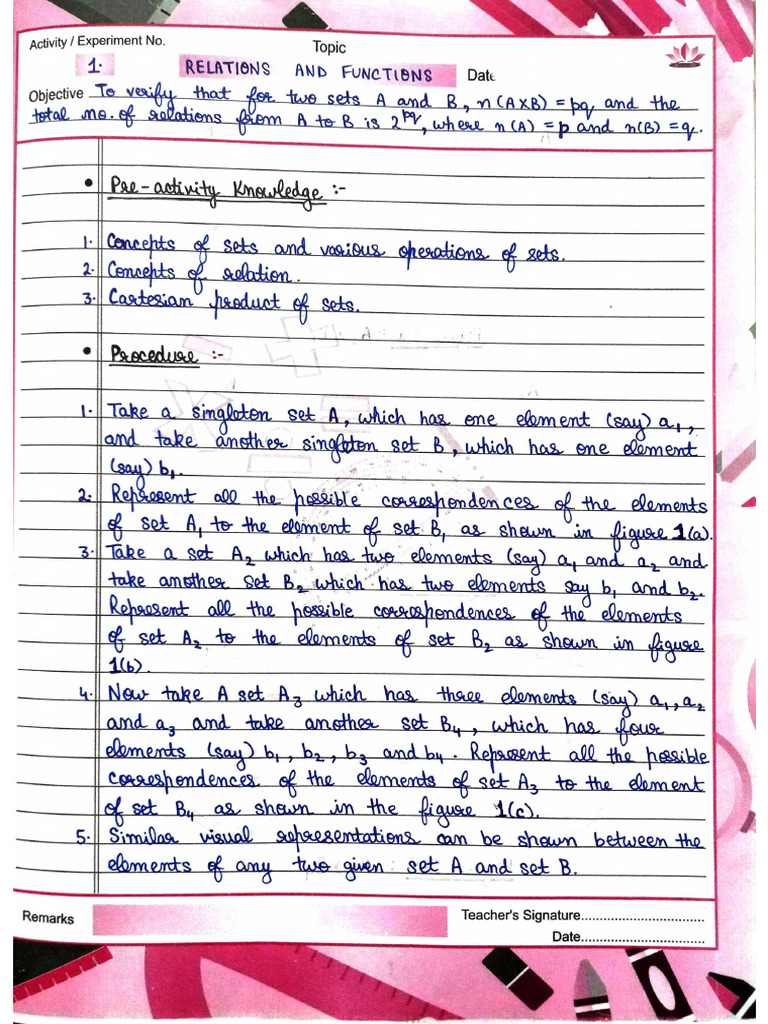 Activity / Experiment No.
Topic
1.
RELATIONS AND FUNCTIONS
Date
Objective To verify that for two sets A and B, n(A×B) = pq and the
total no. of relations from A to B is 2^pq, where n(A) = p and n(B) = q.
• Pre-activity Knowledge :-
1. Concepts of sets and various operations of sets.
2. Concepts of relation.
3. Cartesian product of sets.
• Procedure :-
1. Take a singleton set A, which has one element (say) a₁,
and take another singleton set B, which has one element
(say) b₁.
2. Represent all the possible correspondences of the elements
of set A₁ to the element of set B₁ as shown in figure 1(a).
3. Take a set A₂ which has two elements (say) a₁ and a₂ and
take another set B₂ which has two elements say b₁ and b₂.
Represent all the possible correspondences of the elements
of set A₂ to the elements of set B₂ as shown in figure
1(b).
4. Now take A set A₃ which has three elements (say) a₁, a₂
and a₃ and take another set B₄, which has four
elements (say) b₁, b₂, b₃ and b₄. Represent all the possible
correspondences of the elements of set A₃ to the element
of set B₄ as shown in the figure 1(c).
5. Similar visual representations can be shown between the
elements of any two given set A and set B.
Remarks
Teacher's Signature................................
Date................................